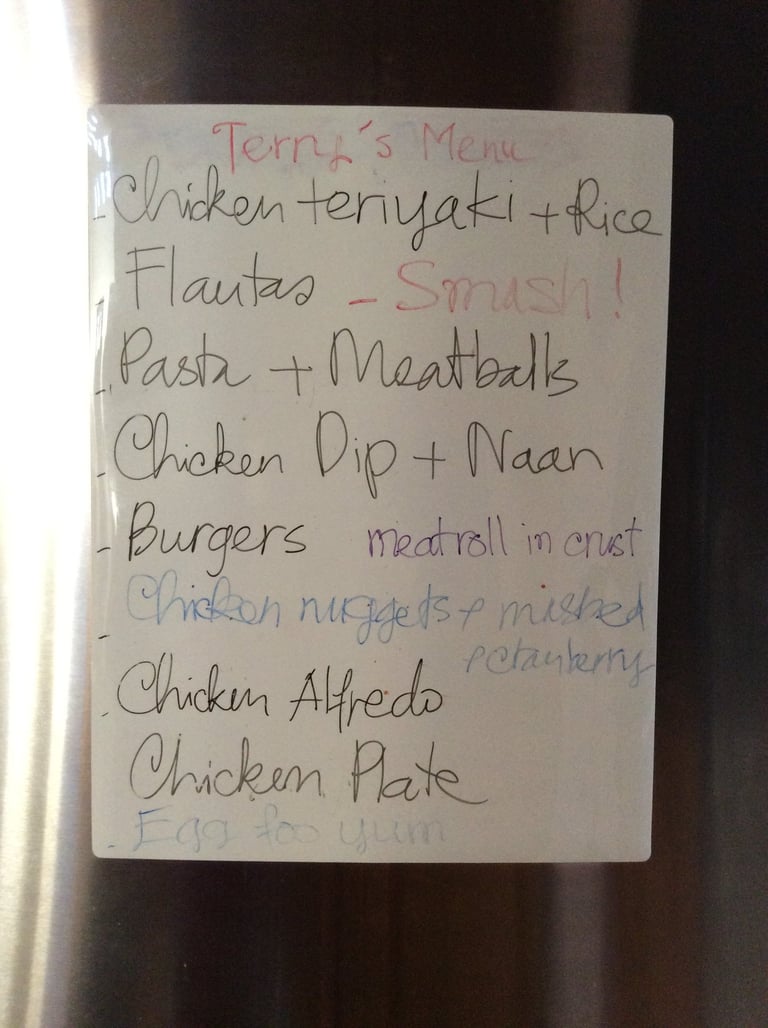 Terry's Menu
- Chicken teriyaki + Rice
- Flautas - Smash!
- Pasta + Meatballs
- Chicken Dip + Naan
- Burgers meatroll in crust
- Chicken nuggets + mashed
+ cranberry
- Chicken Alfredo
Chicken Plate
- Egg foo yum